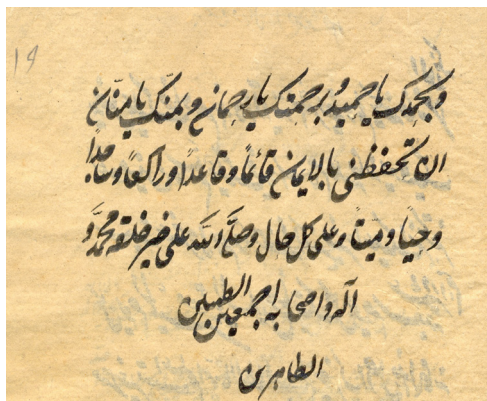 19
وبحمدک یا حمید وبرحمتک یا رحمان وبمنک یا منّان
ان تحفظنی بالایمان قائماً وقاعداً وراکعاً وساجداً
وحیاً ومیتاً وعلی کل حال وصلی الله علی خیر خلقه محمد و
آله واصحابه اجمعین الطیبین
الطاهرین